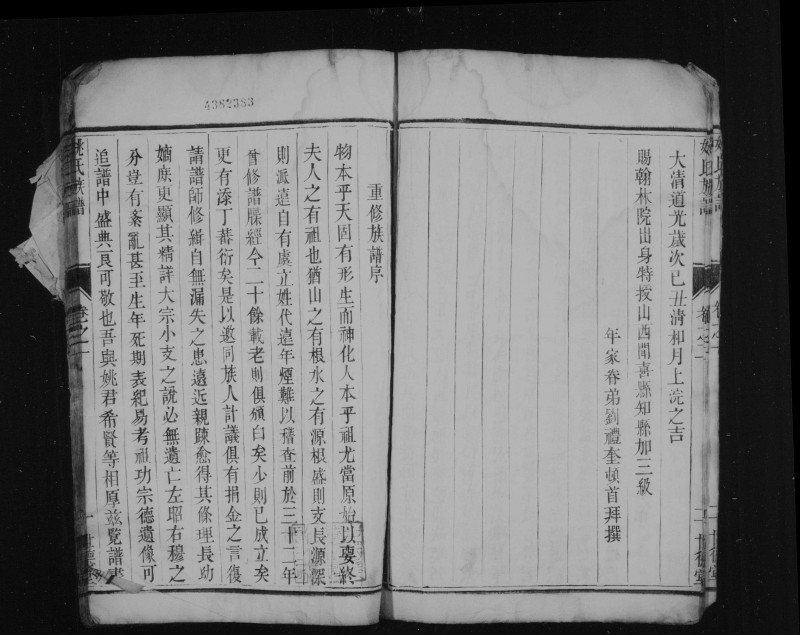 4362383
姚氏族譜
大清道光歲次己丑清和月上浣之吉
賜翰林院出身特授山西聞喜縣知縣加三級
年家眷弟劉禮奎頓首拜撰
重修族譜序
物本乎天固有形生而神化人本乎祖尤當原始以要終
夫人之有祖也猶山之有根水之有源根盛則支長源深
則派遠自有虞立姓代遠年煙難以稽查前於三十二年
曾修譜牒經今二十餘載老則俱頒白矣少則已成立矣
更有添丁蕃衍矣是以邀同族人計議俱有捐金之言復
請譜師修緝自無漏失之患遠近親疎愈得其條理長幼
嫡庶更顯其精詳大宗小支之說必無遺亡左昭右穆之
分豈有紊亂甚至生年死期表紀易考祖功宗德遺像可
追譜中盛典良可敬也吾與姚君希賢等相厚茲覧譜書
姚氏族譜
卷之一